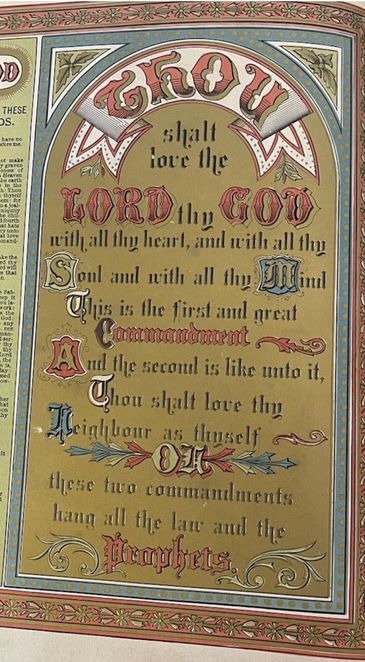 OD
THESE
DS.
THOU
shalt
love the
LORD thy GOD
with all thy heart, and with all thy
Soul and with all thy Mind
This is the first and great
Commandment
And the second is like unto it,
Thou shalt love thy
Neighbour as thyself
ON
these two commandments
hang all the law and the
Prophets.